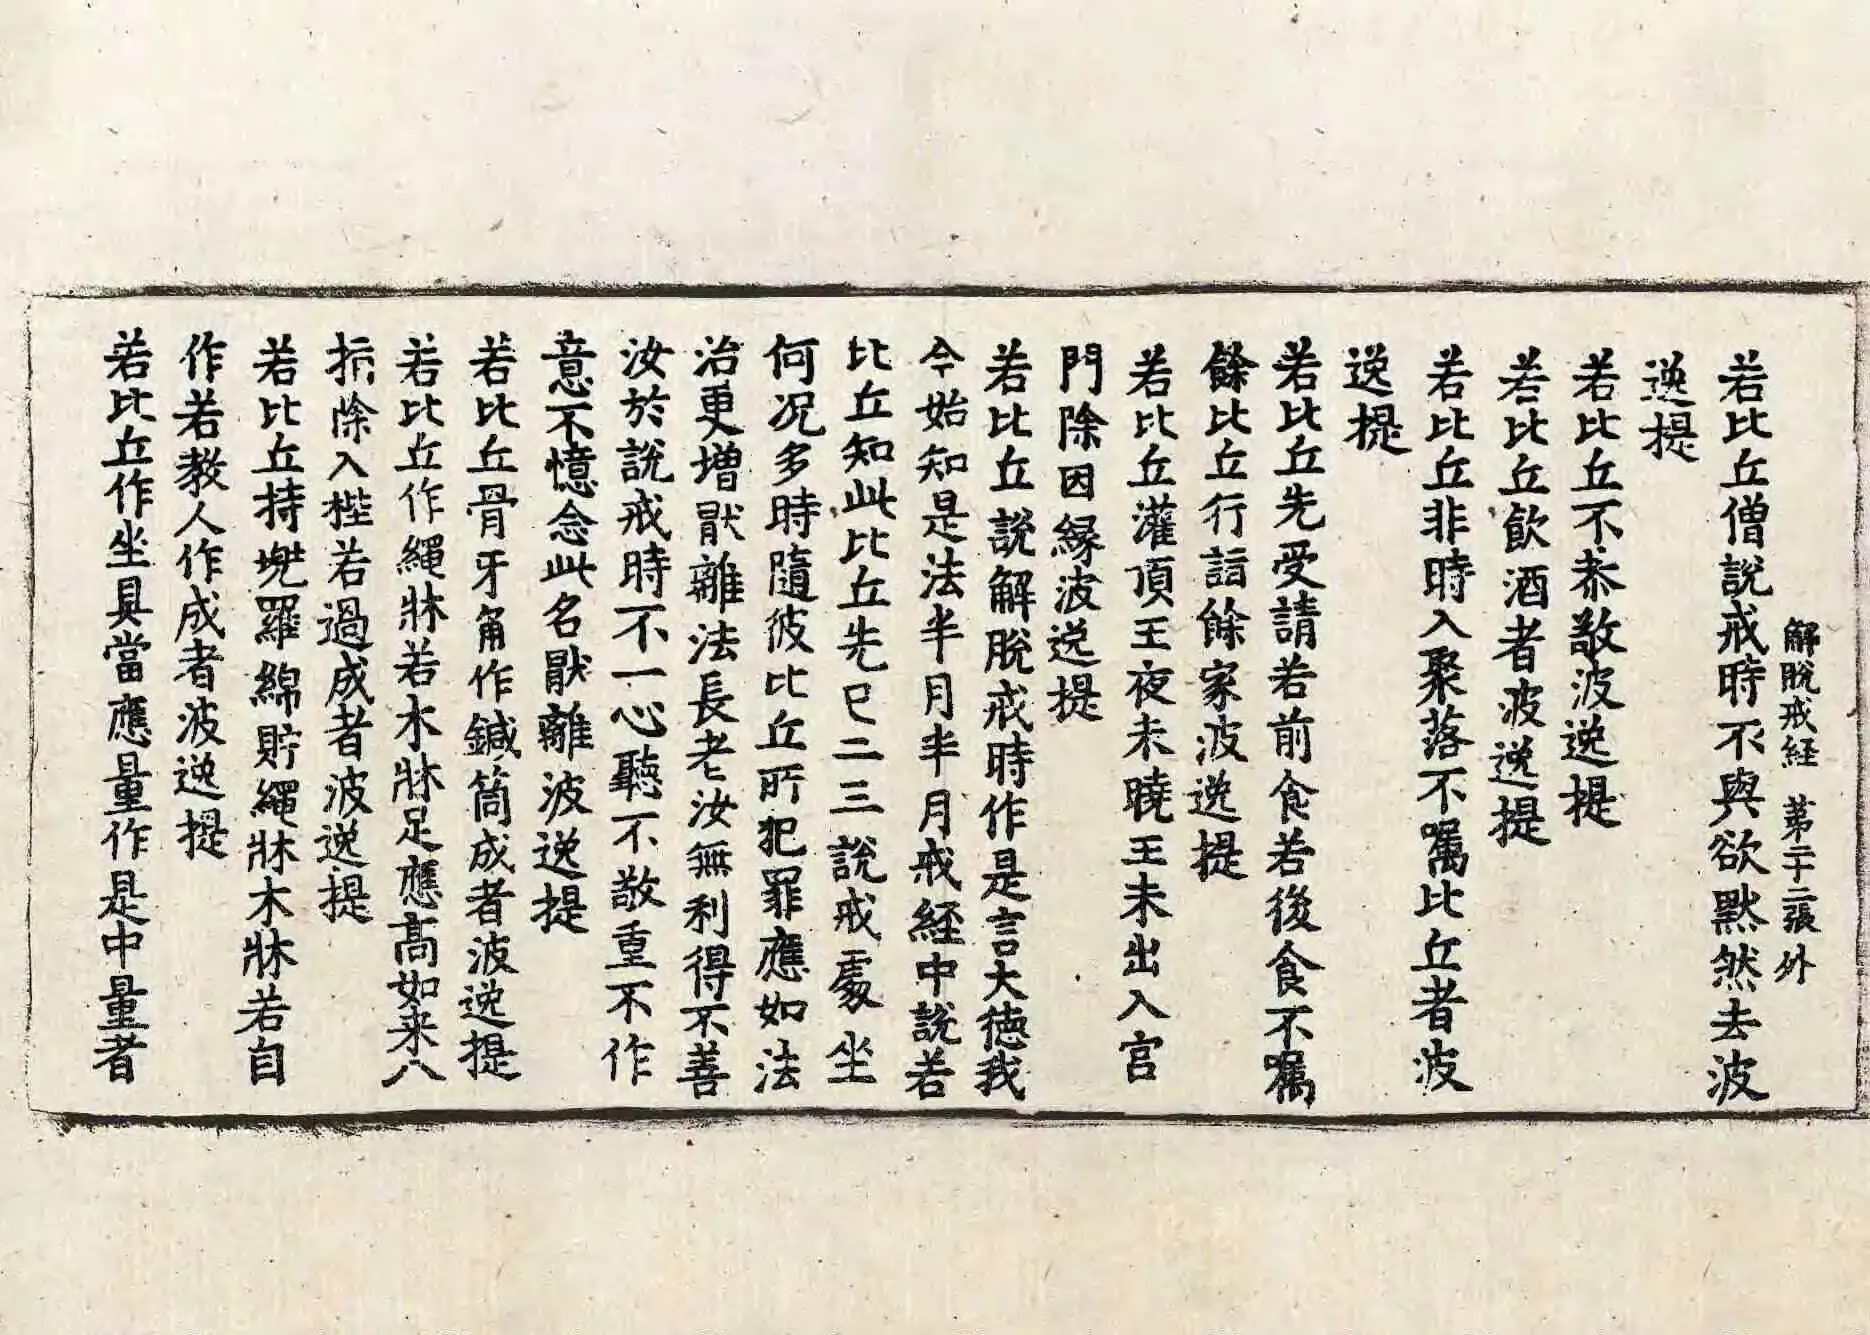 解脫戒経 第二十二張 外
若比丘僧說戒時不與欲默然去波
逸提
若比丘不恭敬波逸提
若比丘飲酒者波逸提
若比丘非時入聚落不囑比丘者波
逸提
若比丘先受請若前食若後食不囑
餘比丘行詣餘家波逸提
若比丘灌頂王夜未曉王未出入宮
門除因緣波逸提
若比丘說解脫戒時作是言大德我
今始知是法半月半月戒経中說若
比丘知此比丘先已二三說戒處坐
何況多時隨彼比丘所犯罪應如法
治更增猒離法長老汝無利得不善
汝於說戒時不一心聽不敬重不作
意不憶念此名猒離波逸提
若比丘骨牙角作鍼筒成者波逸提
若比丘作繩牀若木牀足應高如来八
指除入桯若過成者波逸提
若比丘持兜羅綿貯繩牀木牀若自
作若教人作成者波逸提
若比丘作坐具當應量作是中量者